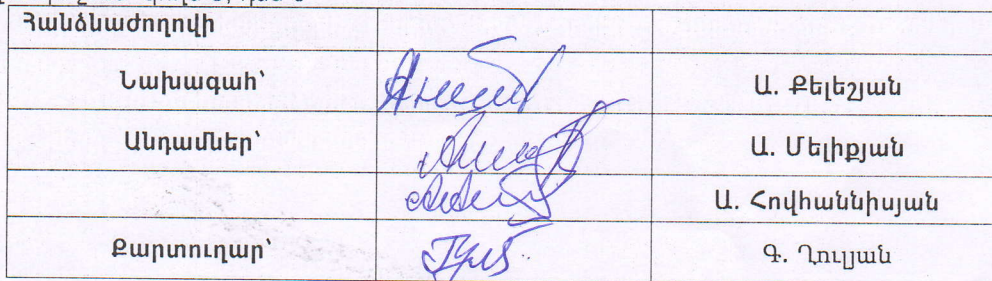 Հանձնաժողովի
Նախագահ՝ Ա. Քելեշյան
Անդամներ՝ Ա. Մելիքյան
Ա. Հովհաննիսյան
Քարտուղար՝ Գ. Ղուլյան